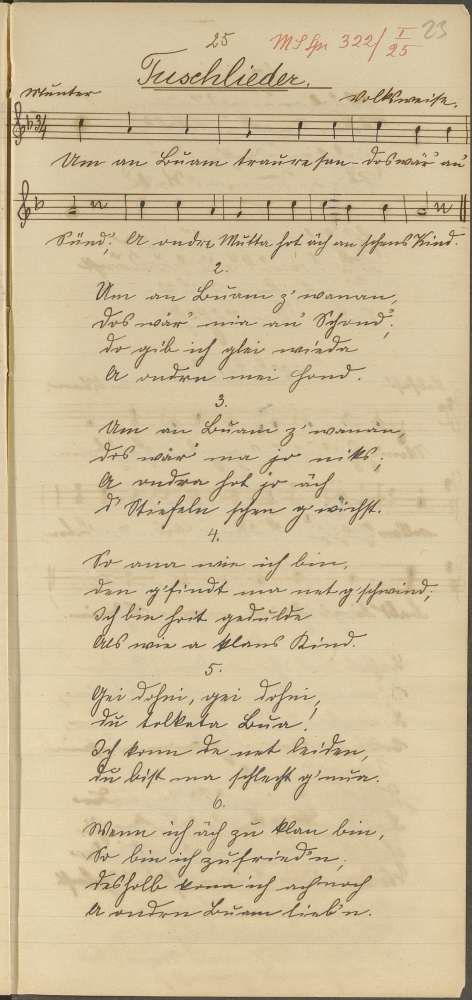 25
MS Spr 322/ I 25
23
Tuschlieder.
Munter
Volksweise.
3/4
Um an Buam traureson dos wär' au
Sünd', A ondre Mutta hot äch an schens Kind.
2.
Um an Buam z' wanan,
dos wär' mia au' Schond';
do gib ich glei wieda
A ondrn mei Hond.
3.
Um an Buam z' wanan,
dos wär' ma jo niks;
A ondra hot jo äch
d' Stiefeln schen g'wichst.
4.
So ana wie ich bin,
den g'findt ma net g'schwind;
Ich bin heit gedulde
Als wie a klans Kind.
5.
Gei dohei, gei dohei,
du tolkata Bua!
Ich konn de net leiden,
du bist ma schlecht g'nua.
6.
Wenn ich äch zu klan bin,
So bin ich zufried'n,
desholb konn ich ach noch
A ondrn Buam lieb'n.